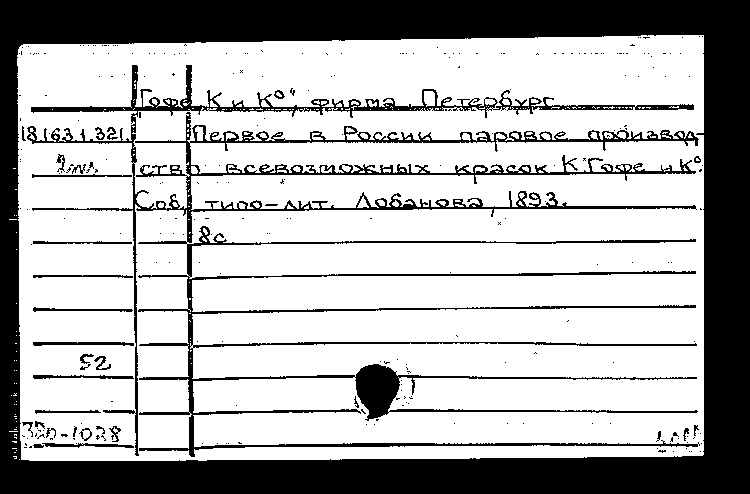 "Гофе, К и К°", фирма. Петербург
18.163.1.321. Первое в России паровое производ-
2 экз. ство всевозможных красок К. Гофе и К°.
Спб, типо-лит. Лобанова, 1893.
8с.
52
320-1028